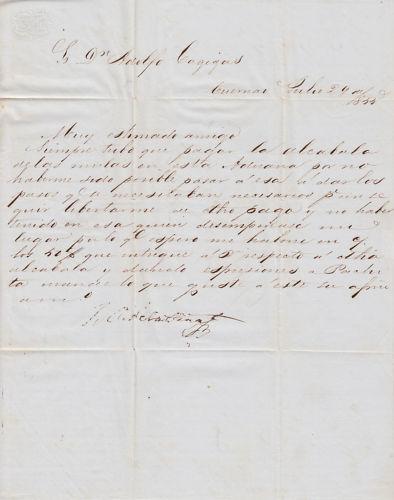 S. Dn Adolfo Cagigas
Cuernav Julio 24 de
1855
Muy estimado amigo
Siempre tube que pagar la alcabala
de las mulas en esta Aduana por no
haberme sido posible pasar a esa a dar los
pasos qe se necesitaban necesarios pa
libertarme de dho pago y no haber
tenido en esa quien desempeñase mi
lugar por lo qe espero me
los 20 p que entregue a V respecto a dha
alcabala y dandole espresiones a
mande lo que guste a este su afmo
amo